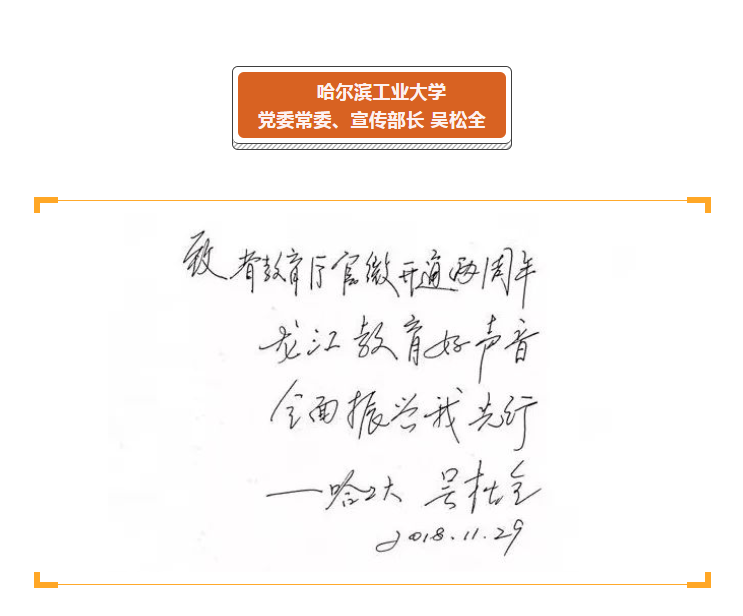 哈尔滨工业大学
党委常委、宣传部长 吴松全
致省教育厅官微开通两周年
龙江教育好声音
全面振兴我先行
—哈工大 吴松全
2018.11.29